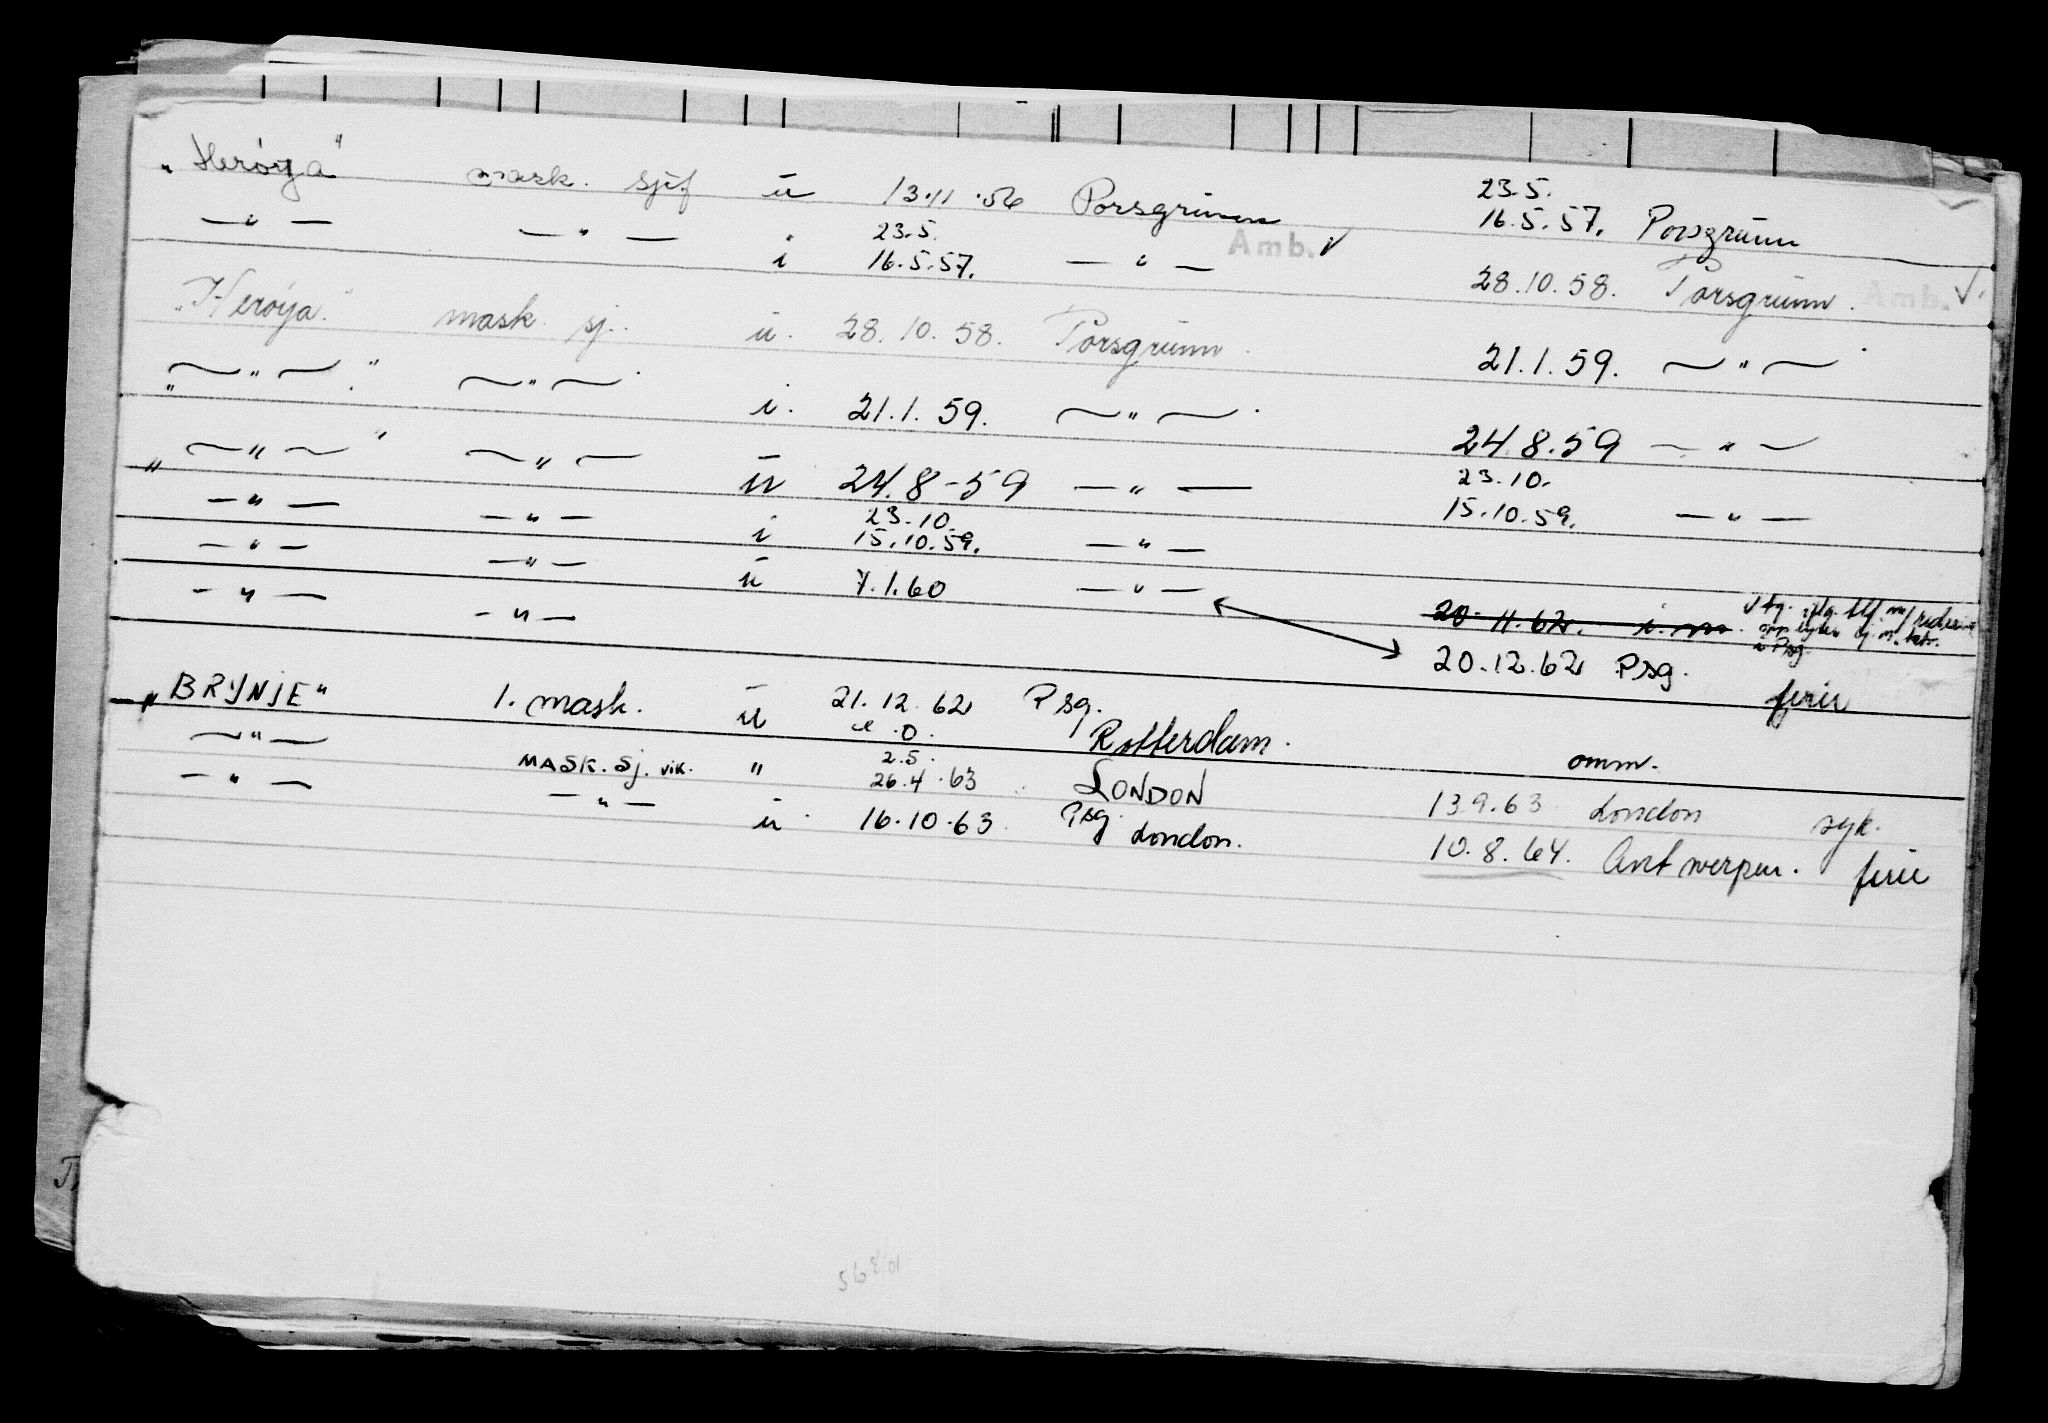 „Herøya" mask. sjef ū 13.11.56 Porsgrunn 23.5. 16.5.57. Porsgrunn
—"— —"— i 23.5. 16.5.57. —"— Amb. ✓ 28.10.58. Porsgrunn. Amb. ✓.
„Herøya." mask. sj. ū. 28.10.58. Porsgrunn. 21.1.59. —"—
„—"—." —"— i. 21.1.59. —"—. 24.8.59 —"—
„—"—" —"— ū 24.8-59 —"— 23.10. 15.10.59. —"—
—"— —"— i 23.10 15.10.59. —"—
—"— —"— ū 7.1.60 —"— 20.11.62. i.m.
—"— —"— 20.12.62 Psg. ferie
„BRYNJE" 1. mask. ū 21.12.62 Psg.
—"— Rotterdam. omm.
—"— MASK. Sj. vik. " 2.5. 26.4.63 LONDON 13.9.63 London syk.
—"— ū 16.10.63 Psg. London. 10.8.64. Antwerpen. ferie